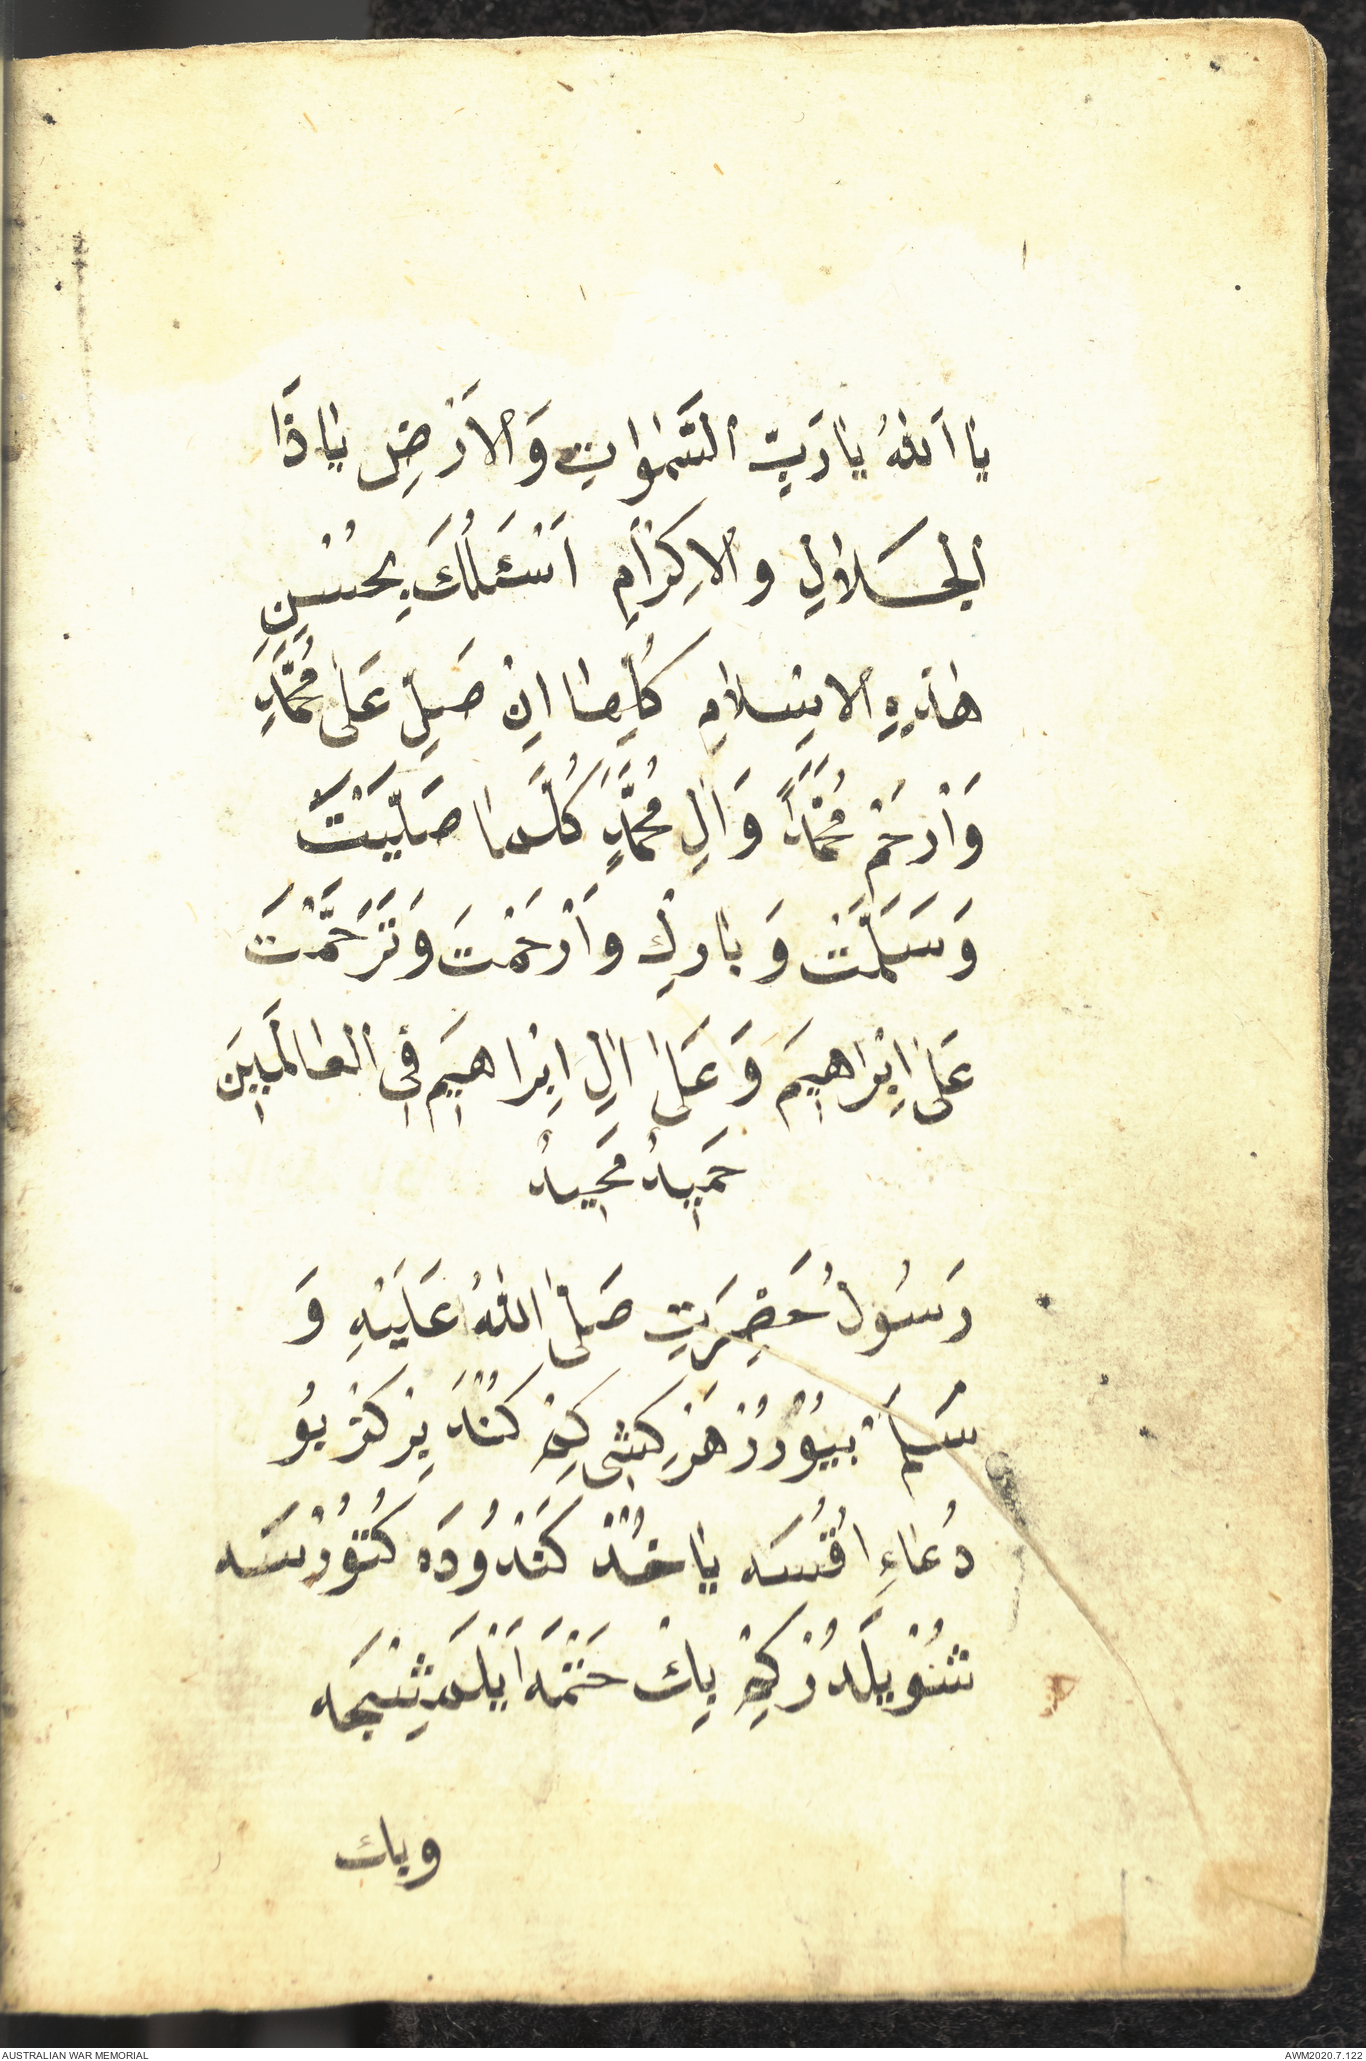 يَا اَللّٰهُ يَا رَبِّ السَّمٰوَاتِ وَالْاَرْضِ يَا ذَا
الْجَلَالِ وَالْاِكْرَامِ اَسْئَلُكَ بِحُسْنِ
هٰذِهِ الْاِسْلَامِ كُلِّهَا اِنْ صَلِّ عَلٰى مُحَمَّدٍ
وَارْحَمْ مُحَمَّدًا وَاٰلِ مُحَمَّدٍ كُلَّمَا صَلَّيْتَ
وَسَلَّمْتَ وَبَارِكْ وَاَرْحَمْتَ وَتَرَحَّمْتَ
عَلٰى اِبْرَاهِيمَ وَعَلٰى اٰلِ اِبْرَاهِيمَ فِى الْعَالَمِينَ
حَمِيدٌ مَجِيدٌ
رَسُولُ حَضِرَتِ صَلَّى اللّٰهُ عَلَيْهِ وَ
سَلَّمَ بُيُوْرُرْ هَرْ كِشِى كِمْ كَنْدُ بِرْ كَرْ بُو
دُعَاءِ اُقُسَه يَا خُذْ كَنْدُودَه كُتُورْسَه
شُنُو يِلَه دُرْ كِمْ بِكْ خَتْمَه اَيْلَمِشْجَه
وبك
AUSTRALIAN WAR MEMORIAL
AWM2020.7.122